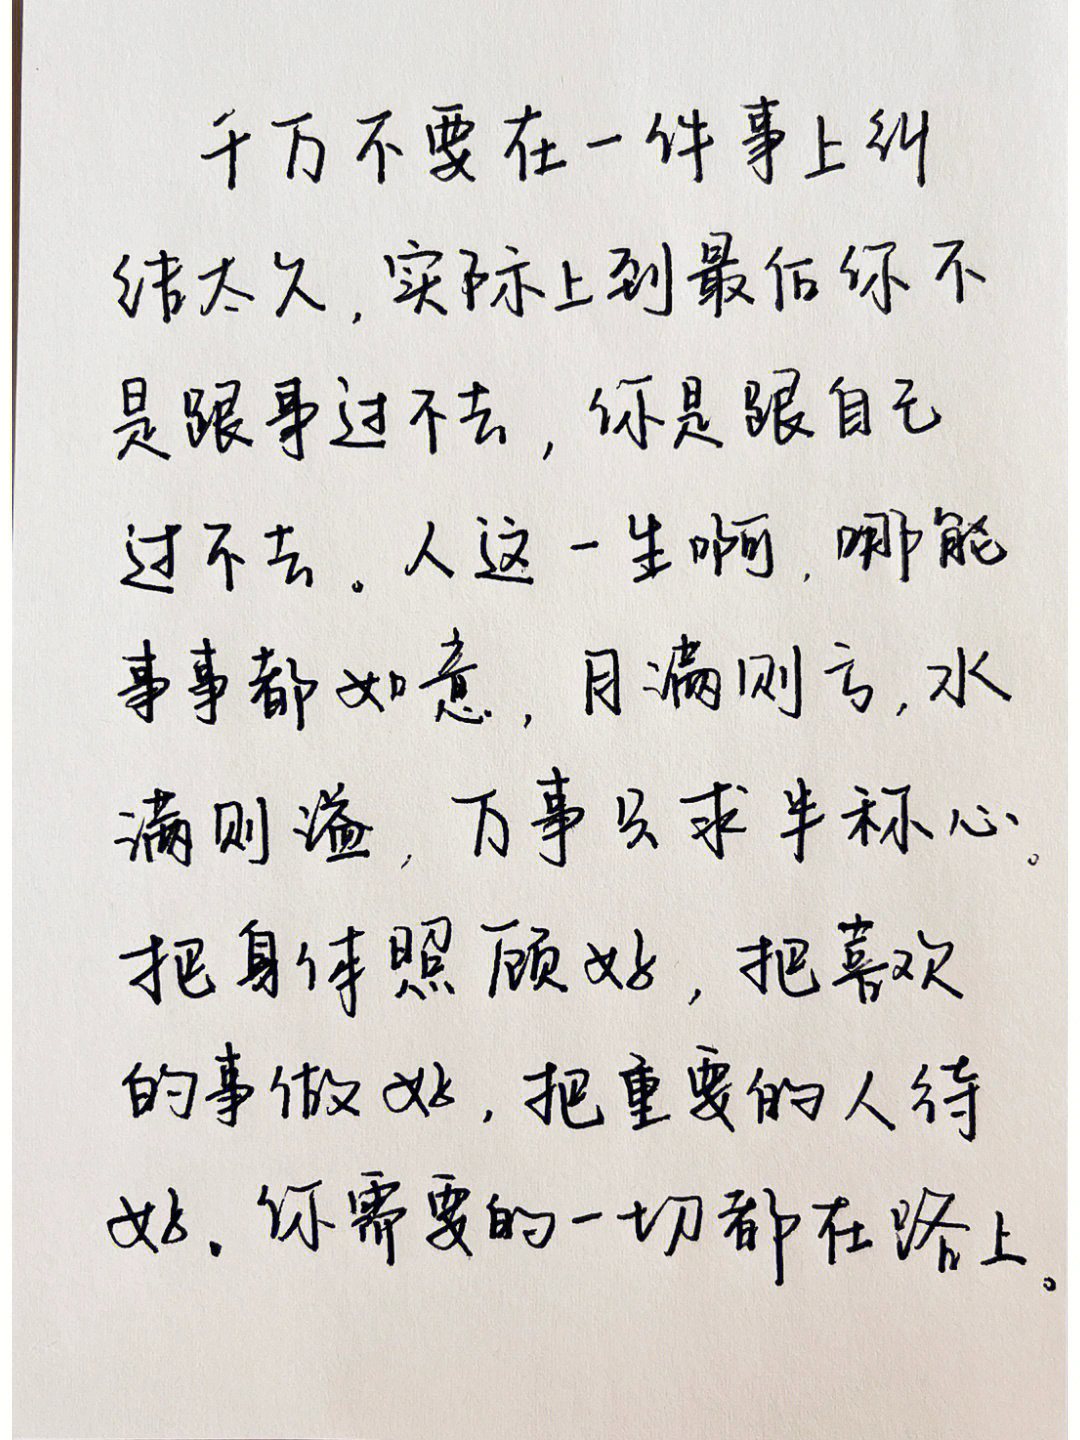 千万不要在一件事上纠
结太久，实际上到最后你不
是跟事过不去，你是跟自己
过不去。人这一生啊，哪能
事事都如意，月满则亏，水
满则溢，万事只求半称心。
把身体照顾好，把喜欢
的事做好，把重要的人待
好。你需要的一切都在路上。